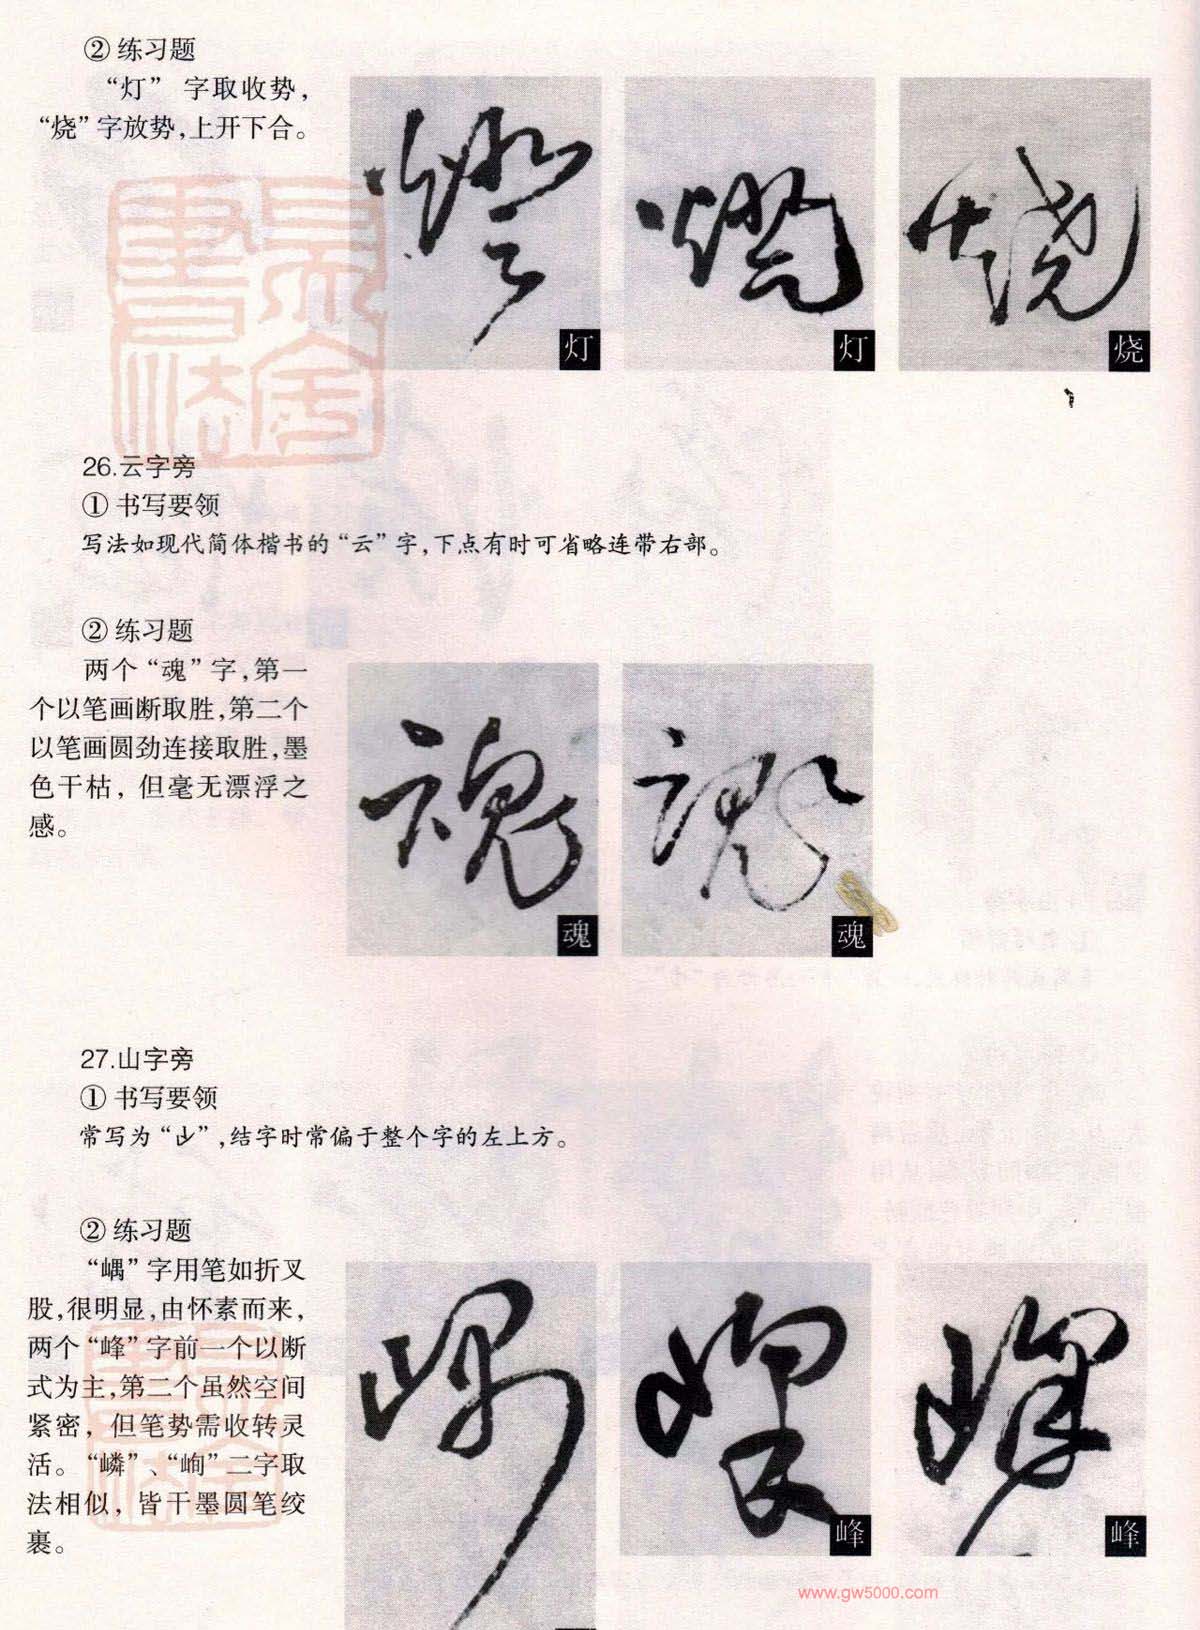 ② 练习题
“灯” 字取收势，
“烧”字放势，上开下合。
灯
灯
烧
26.云字旁
① 书写要领
写法如现代简体楷书的“云”字，下点有时可省略连带右部。
② 练习题
两个“魂”字，第一
个以笔画断取胜，第二个
以笔画圆劲连接取胜，墨
色干枯，但毫无漂浮之
感。
魂
魂
27.山字旁
① 书写要领
常写为“山”，结字时常偏于整个字的左上方。
② 练习题
“嵎”字用笔如折叉
股，很明显，由怀素而来，
两个“峰”字前一个以断
式为主，第二个虽然空间
紧密，但笔势需收转灵
活。“嶙”、“峋”二字取
法相似，皆干墨圆笔绞
裹。
峰
峰
www.gw5000.com